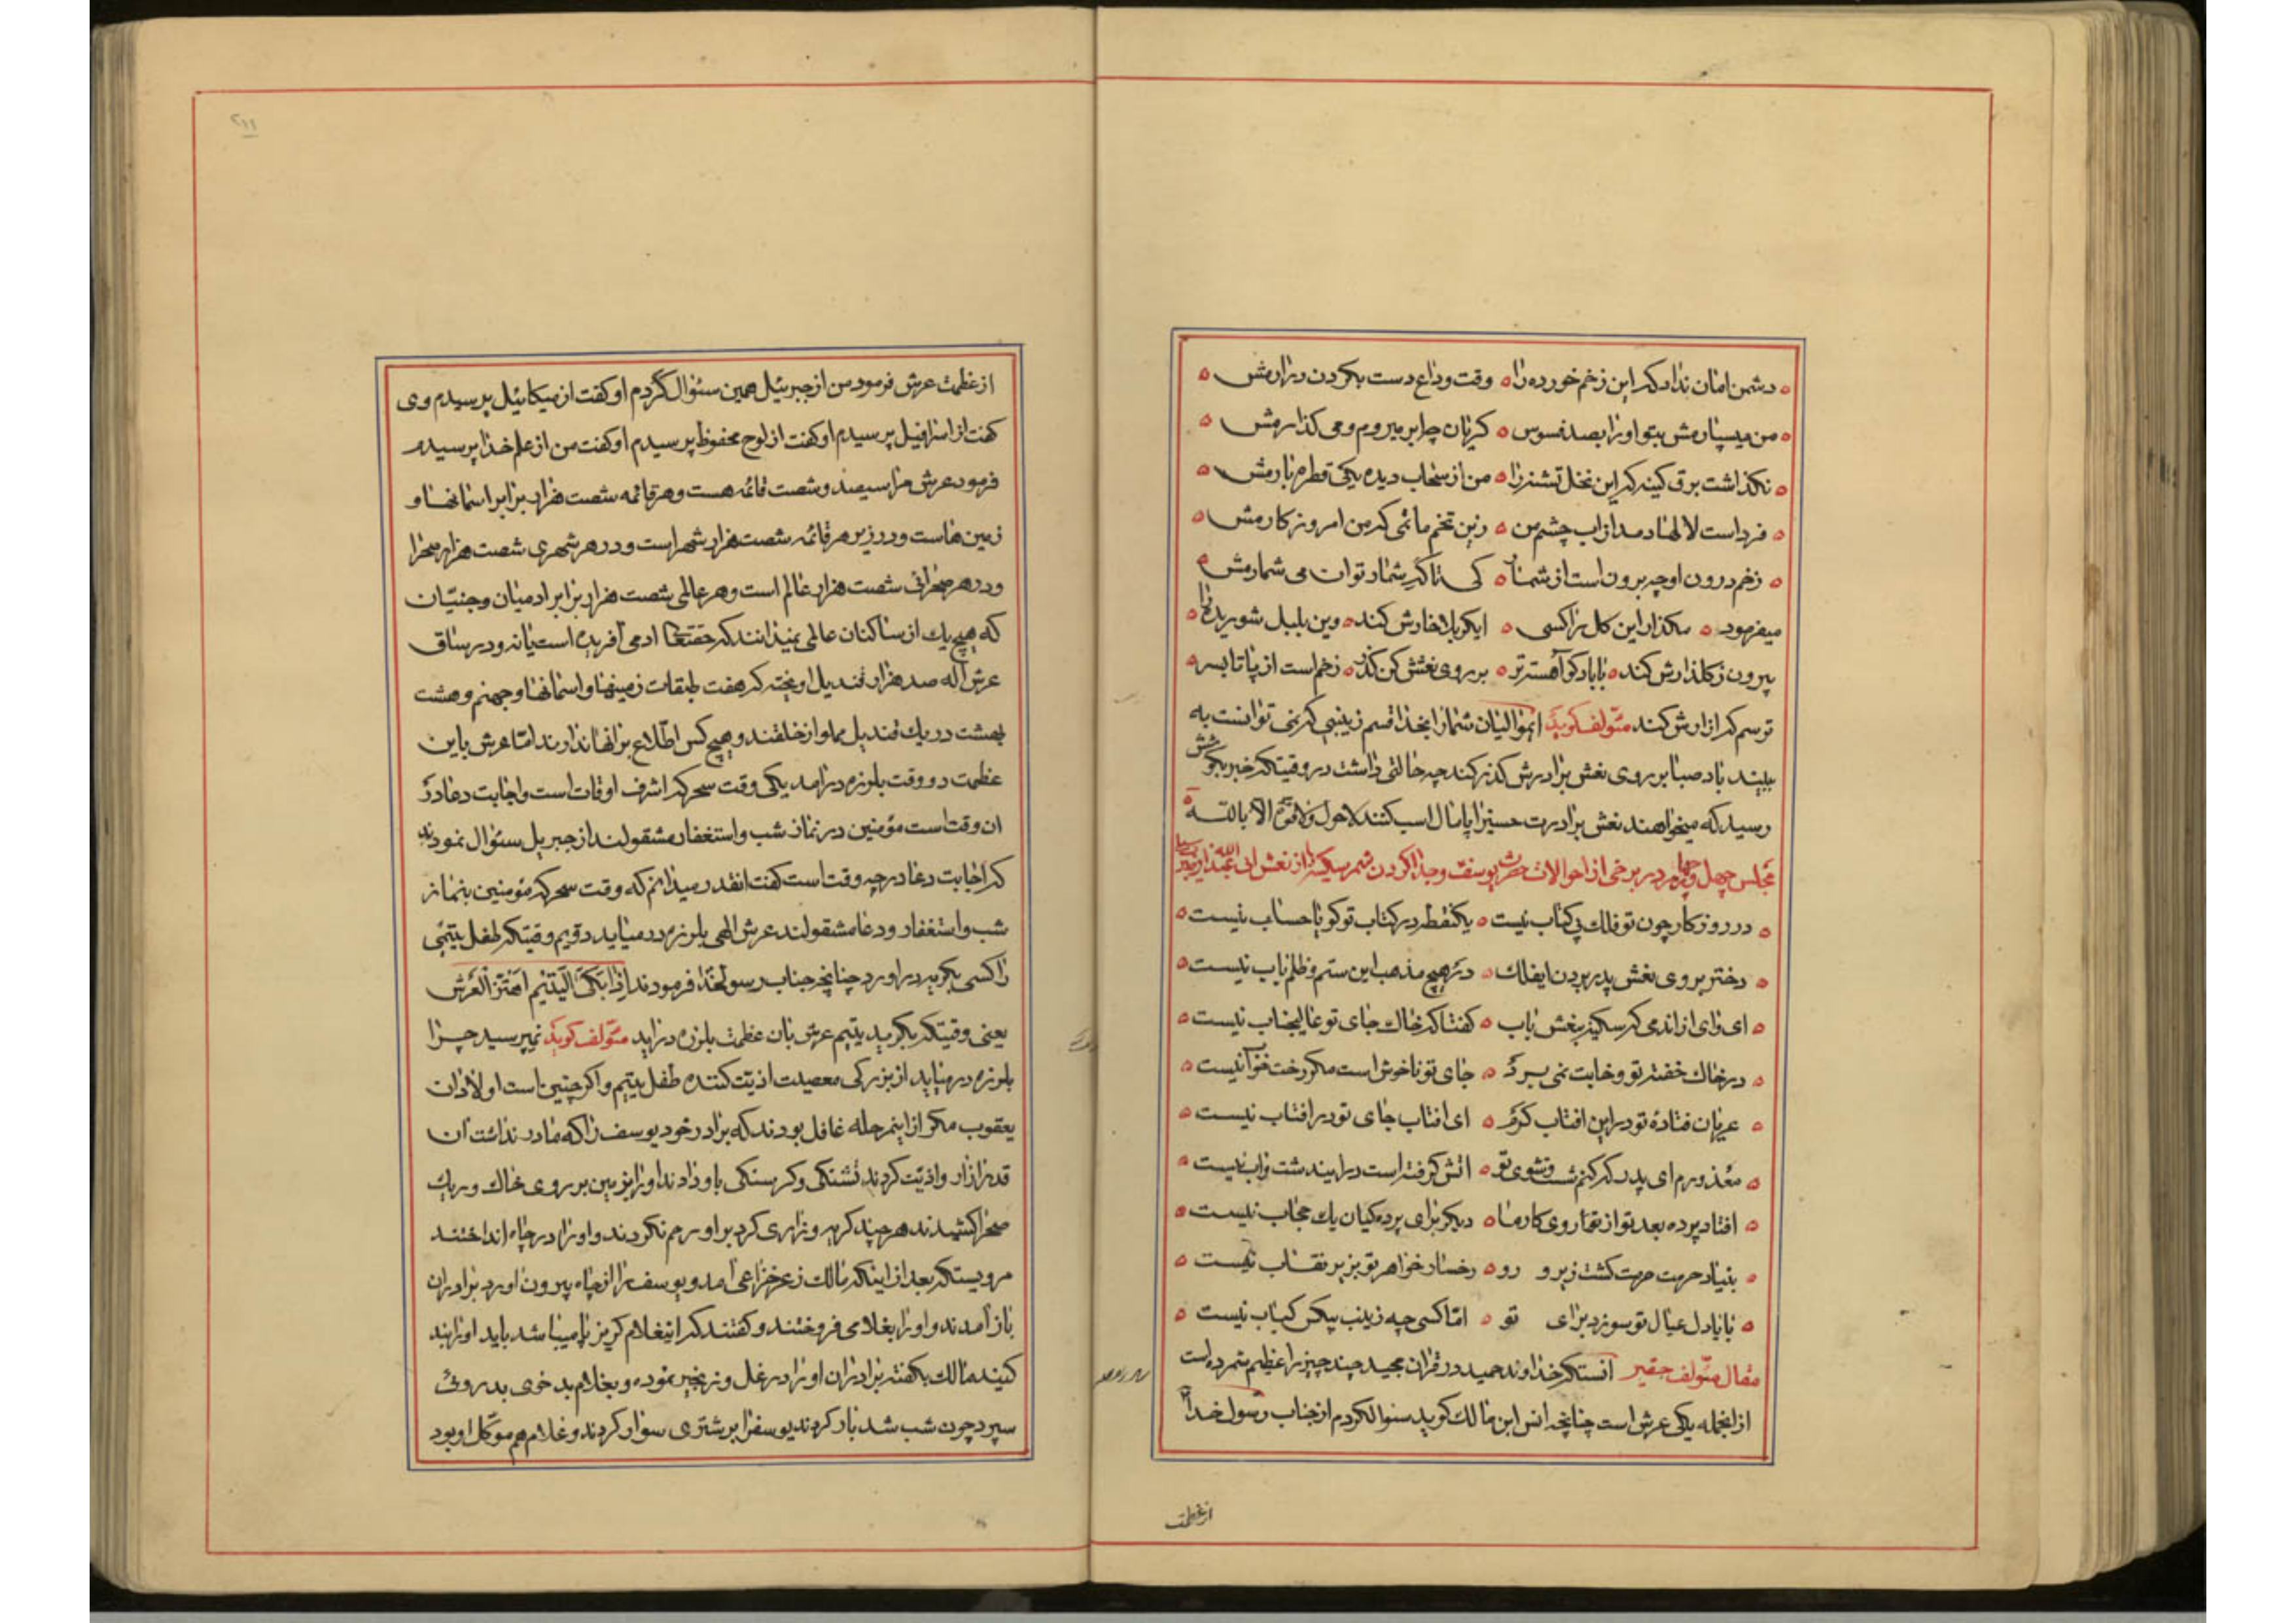 دشمن امان نداد که این زخم خورده را ه وقت وداع دست بگردن درارمش
من میسپارمش بتو او را بصد فسوس ه گریان چابر میروم و می گذارمش
نگذاشت برق کینه که این نخل تشنه را ه من از سحاب دیده یکی قطره بارمش
فرداست لالها دمد از اب چشم من ه زین تخم ماتمی که من امروز کارمش
زخم درون او چه برون است از شمار ه کی تا اگر شماد توان می شمارمش
میفرمود ه مگذار این گل را کسی ه ایکربلا خارش کند ه وین بلبل شوریده را
بیرون ز گلذارش کند ه با باد گو آهسته تر ه بر روی نعشش کن گذر ه زخم است از پا تا بسر
ترسم که ازارش کند مئولف گوید ایموالیان شما را بخدا قسم زینبی که نمی توانست به
بیند باد صبا بر روی نعش برادرش گذر کند چه حالتی داشت در وقتیکه خبر بگوشش
رسید که میخواهند نعش برادرت حسین را پامال اسب کنند لاحول ولا قوة الا بالله
مجلس چهل و چهارم در برخی از احوالات حضرت یوسف و جدا کردن شمر سکینه را از نعش ابی عبدالله
در روزگار چون تو فلک بی کتاب نیست ه یکنقطه در کتاب تو گویا حساب نیست
دختر بروی نعش پدر بردن ایفلک ه در هیچ مذهب این ستم و ظلم باب نیست
ای وای از اندمی که سکینه بنعش باب ه گفتا که خاک جای تو عالیجناب نیست
در خاک خفته تو و خابت نمی برد ه جای تو ناخوش است مگر رخت خوآب نیست
عریان فتادهٔ تو در این افتاب گرم ه ای افتاب جای تو در افتاب نیست
معذورم ای پدر که کنم شست و شوی تو ه اتش گرفته است در ایندشت و اب نیست
افتاد پرده بعد تو از روی کار ما ه دیگر برای پرده کیان یک حجاب نیست
بنیاد حرمت حرمت گشت زیر و رو ه رخسار خواهر تو بزیر نقاب نیست
بابا دل عیال تو سوزد برای تو ه امّا کسی چه زینب بیکس کباب نیست
مقال مئولف حقیر انستکه خداوند حمید در قران مجید چند چیز را عظیم شمرده است
از انجمله یکی عرش است چنانچه انس ابن مالک گوید سئوال کردم از جناب رسول خدا
از عظمت
۲۱۱
از عظمت عرش فرمود من از جبرئیل همین سئوال کردم او گفت از میکائیل پرسیدم وی
گفت از اسرافیل پرسیدم او گفت از لوح محفوظ پرسیدم او گفت من از علم خدا پرسیدم
فرمود عرش را سیصد و شصت قائمه هست و هر قائمه شصت هزار برابر اسمانها و
زمین هاست و در زیر هر قائمه شصت هزار شهر است و در هر شهری شصت هزار صحرا
و در هر صحرائی شصت هزار عالم است و هر عالمی شصت هزار برابر ادمیان و جنیّان
که هیچ یک از ساکنان عالمی نمیدانند که حقتعالی ادمی آفریده است یا نه و در ساق
عرش اله صد هزار قندیل اویخته که هفت طبقات زمینها و اسمانها و جهنم و هشت
بهشت در یک قندیل مملو از خلقند و هیچ کس اطّلاع بر انها ندارند امّا عرش باین
عظمت دو وقت بلرزه درامد یکی وقت سحر که اشرف اوقات است و اجابت دعا در
ان وقت است مؤمنین در نماز شب و استغفار مشقولند از جبریل سئوال نمودند
که اجابت دعا در چه وقت است گفت انقدر میدانم که وقت سحر که مؤمنین بنماز
شب و استغفار و دعا مشقولند عرش الهی بلرزه در میاید دوّیم وقتیکه طفل یتیمی
را کسی بگریه دراورد چنانچه جناب رسولخدا فرمودند اِذا بَکَی الْیَتیْمِ اِهْتَزَّ الْعَرْش
یعنی وقتیکه بگرید یتیم عرش بان عظمت بلرزه دراید مئولف گوید نمیپرسید چرا
بلرزه در میاید از بزرگی معصیت اذیّت کننده طفل یتیم و اگر چنین است اولادان
یعقوب مگر از اینمرحله غافل بودند که برادر خود یوسف را که مادر نداشت ان
قدر ازار و اذیّت کردند تشنگی و گرسنگی باو دادند او را بزمین بر روی خاک و ریک
صحرا کشیدند هر چند گریه و زاری کرد بر او رحم نکردند و او را در چاه انداختند
مرویستکه بعد از اینکه مالک زعر خزاعی امد و یوسف را از چاه بیرون اورد برادران
باز آمدند و او را بغلامی فروختند و گفتند که اینغلام گریز پا میباشد باید او را بند
کنید مالک بگفته برادران او را در غل و زنجیر نموده و بغلام بد خوی بد روئ
سپرد چون شب شد بار کردند یوسفرا بر شتری سوار کردند و غلام هم موکّل او بود